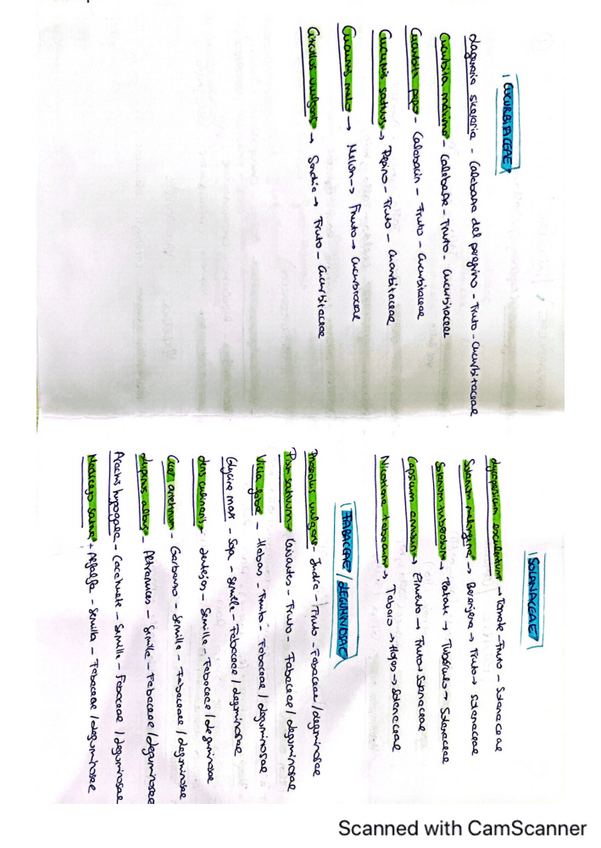 CUCURBITACEAE
Lagenaria siceraria - Calabaza del peregrino - Fruto - Cucurbitaceae
Cucurbita máxima - Calabaza - Fruto - Cucurbitaceae
Cucurbita pepo - Calabacín - Fruto - Cucurbitaceae
Cucumis sativus → Pepino - Fruto - Cucurbitaceae
Cucumis melo → Melón → Fruto → Cucurbitaceae
Citrullus vulgaris → Sandía → Fruto - Cucurbitaceae
SOLANACEAE
Lycopersicon esculentum → Tomate - Fruto - Solanaceae
Solanum melongena → Berenjena → Fruto - Solanaceae
Solanum tuberosum → Patata → Tubérculo → Solanaceae
Capsicum annuum → Pimiento → Fruto → Solanaceae
Nicotiana tabacum → Tabaco → Hojas → Solanaceae
FABACEAE / LEGUMINOSAE
Phaseolus vulgaris - Judía - Fruto - Fabaceae / Leguminosae
Pisum sativum - Guisantes - Fruto - Fabaceae / Leguminosae
Vicia faba - Habas - Fruto - Fabaceae / Leguminosae
Glycine max - Soja - Semilla - Fabaceae / Leguminosae
Lens culinaris - Lentejas - Semilla - Fabaceae / Leguminosae
Cicer arietinum - Garbanzo - Semilla - Fabaceae / Leguminosae
Lupinus albus - Altramuces - Semilla - Fabaceae / Leguminosae
Arachis hypogaea - Cacahuete - Semilla - Fabaceae / Leguminosae
Medicago sativa - Alfalfa - Semilla - Fabaceae / Leguminosae
Scanned with CamScanner